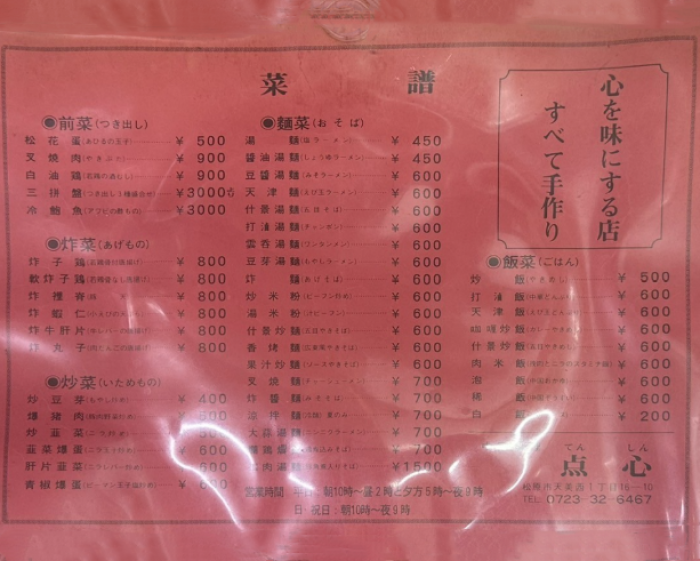 菜譜
心を味にする店
すべて手作り
◉前菜(つき出し)
松花蛋(あひるの玉子) ¥500
叉焼肉(やきぶた) ¥900
白油鶏(若鶏の蒸むし) ¥900
三拼盤(つき出し3種盛合せ) ¥3000
冷鮑魚(アワビの酢もの) ¥3000
◉炸菜(あげもの)
炸子鶏(若鶏骨付唐揚げ) ¥800
軟炸子鶏(若鶏骨なし唐揚げ) ¥800
炸裡脊 ¥800
炸蝦仁(小えびの天ぷら) ¥800
炸牛肝片(牛レバーの唐揚げ) ¥800
炸丸子(肉だんごの唐揚げ) ¥800
◉炒菜(いためもの)
炒豆芽(もやし炒め) ¥400
爆猪肉(豚の野菜炒め)
炒韮菜(ニラ炒め)
韮菜爆蛋(ニラ玉子炒め) ¥600
肝片韮菜(ニラレバー炒め) ¥600
青椒爆蛋(ピーマン玉子炒め) ¥600
◉麺菜(おそば)
湯麺(塩ラーメン) ¥450
醤油湯麺(しょうゆラーメン) ¥450
豆醤湯麺(みそラーメン) ¥600
天津麺(えび玉ラーメン) ¥600
什景湯麺(五目そば) ¥600
打滷湯麺(チャンポン) ¥600
雲呑湯麺(ワンタンメン) ¥600
豆芽湯麺(もやしラーメン) ¥600
炸麺(あげそば) ¥600
炒米粉(ビーフン炒め) ¥600
湯米粉(汁ビーフン) ¥600
什景炒麺(五目やきそば) ¥600
香烤麺(広東風やきそば) ¥600
果汁炒麺(ソースやきそば) ¥600
叉焼麺(チャーシューメン) ¥700
炸醤麺(みそそば) ¥700
涼拌麺(冷麺)夏のみ ¥700
大蒜湯麺(ニンニクラーメン) ¥700
麺 ¥700
肉湯麺 ¥1500
◉飯菜(ごはん)
炒飯(やきめし) ¥500
打滷飯(中華どんぶり) ¥600
天津飯(えび玉どんぶり) ¥600
咖喱炒飯(カレーやきめし) ¥600
什景炒飯(五目やきめし) ¥600
肉米飯 ¥600
泡飯 ¥600
飯 ¥600
白飯 ¥200
営業時間 平日：朝10時〜昼2時と夕方5時〜夜9時
日・祝日：朝10時〜夜9時
てん しん
点心
松原市天美西1丁目16―10
TEL 0723-32-6467